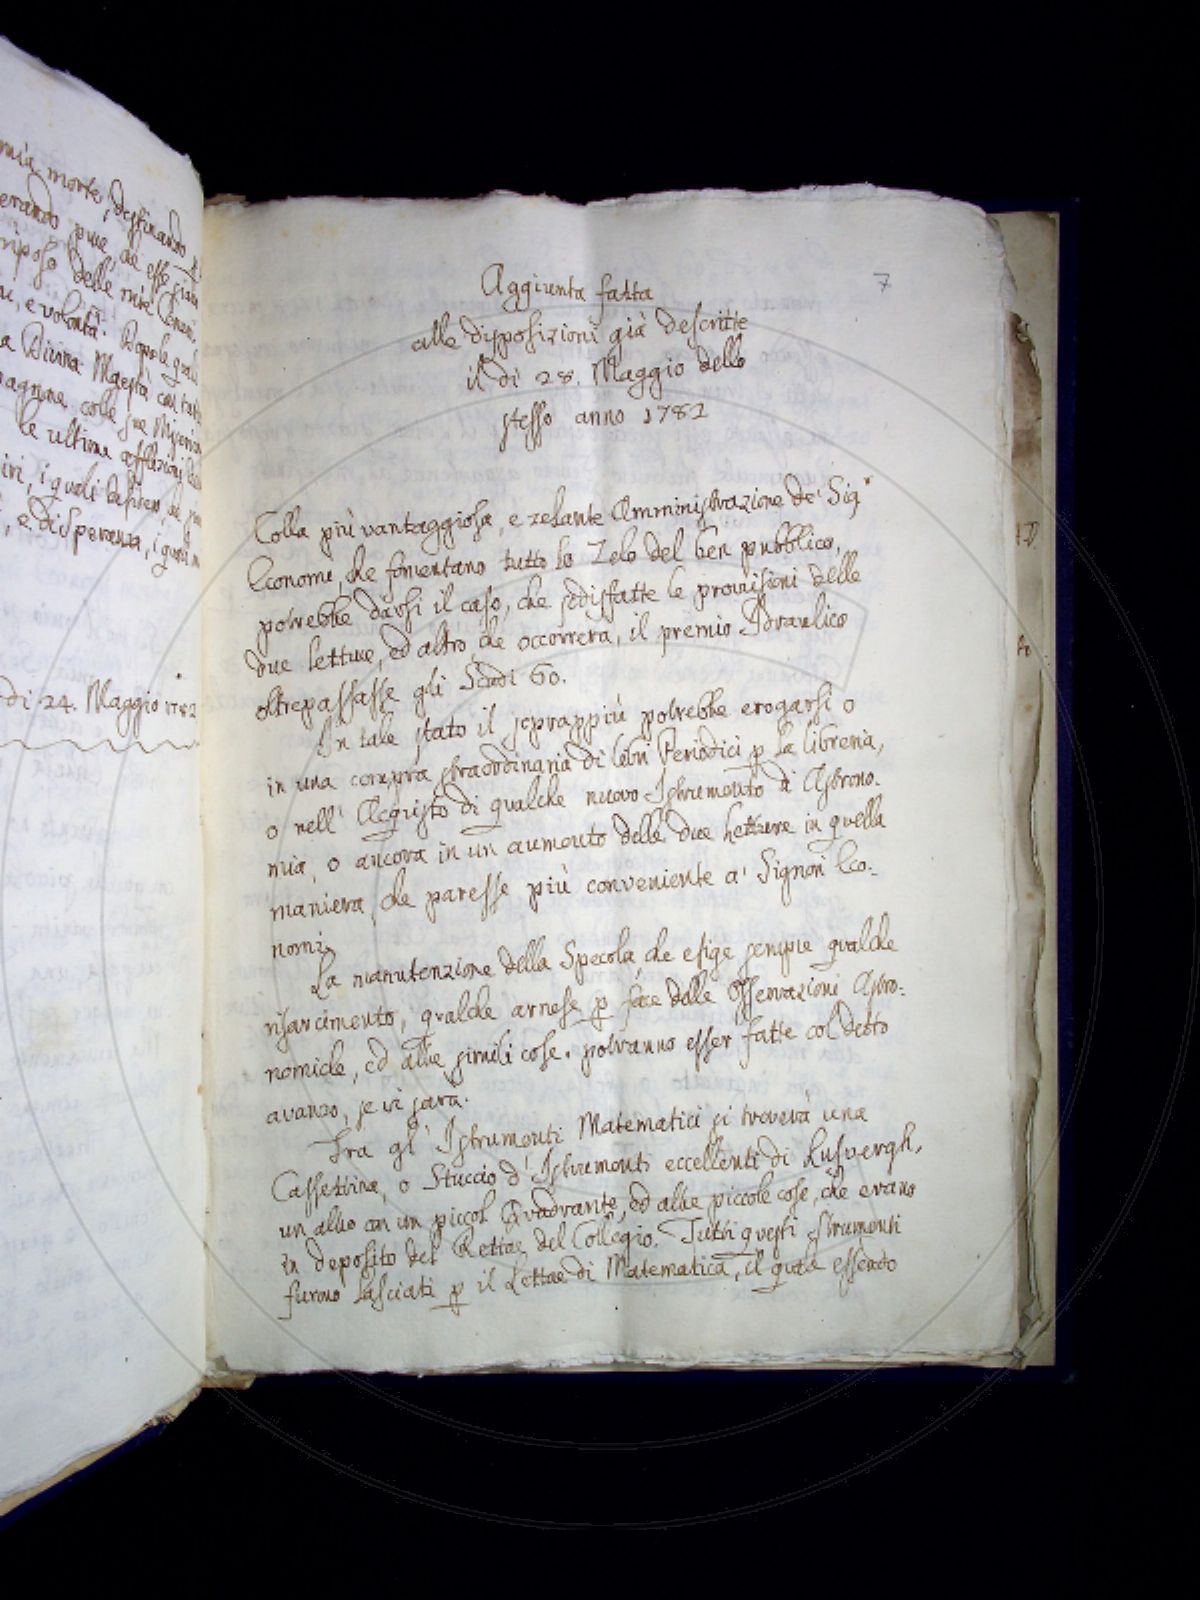 mia morte, destinando
erando pure, de esse
riposo delle mie
e volontà. Dopo le quali
a Divina Maestà con tutta
colle sue
le ultime afflizioni
i quali
e disperanza, i quali
di 24. Maggio 1782
7
Aggiunta fatta
alle disposizioni già descritte
il dì 28. Maggio dello
stesso anno 1782
Colla più vantaggiosa, e zelante Amministrazione de' Sigri
Economi, che fomentano tutto lo Zelo del ben pubblico,
potrebbe darsi il caso, che sodisfatte le provisioni delle
due letture, ed altro, che occorrerà, il premio Idraulico
oltrepassasse gli Scudi 60.
In tale stato il soprappiù potrebbe erogarsi o
in una compra straordinaria di libri Periodici p la libreria,
o nell' Acquisto di qualche nuovo Istrumento di Astrono-
mia, o ancora in un aumento delle due letture in quella
maniera, che paresse più conveniente a' Signori Eco-
nomi.
La manutenzione della Specola che esige sempre qualche
risarcimento, qualche arnese p fare delle Osservazioni Astro-
nomiche, ed altre simili cose, potranno esser fatte col detto
avanzo, se vi sarà.
Tra gl' Istrumenti Matematici si troverà una
Cassettina, o Stuccio d' Istrumenti eccellenti di Lusvergh,
un altro con un piccol Quadrante, ed altre piccole cose, che erano
in deposito del Rettore del Collegio. Tutti questi strumenti
furono lasciati p il Lettore di Matematica, il quale essendo